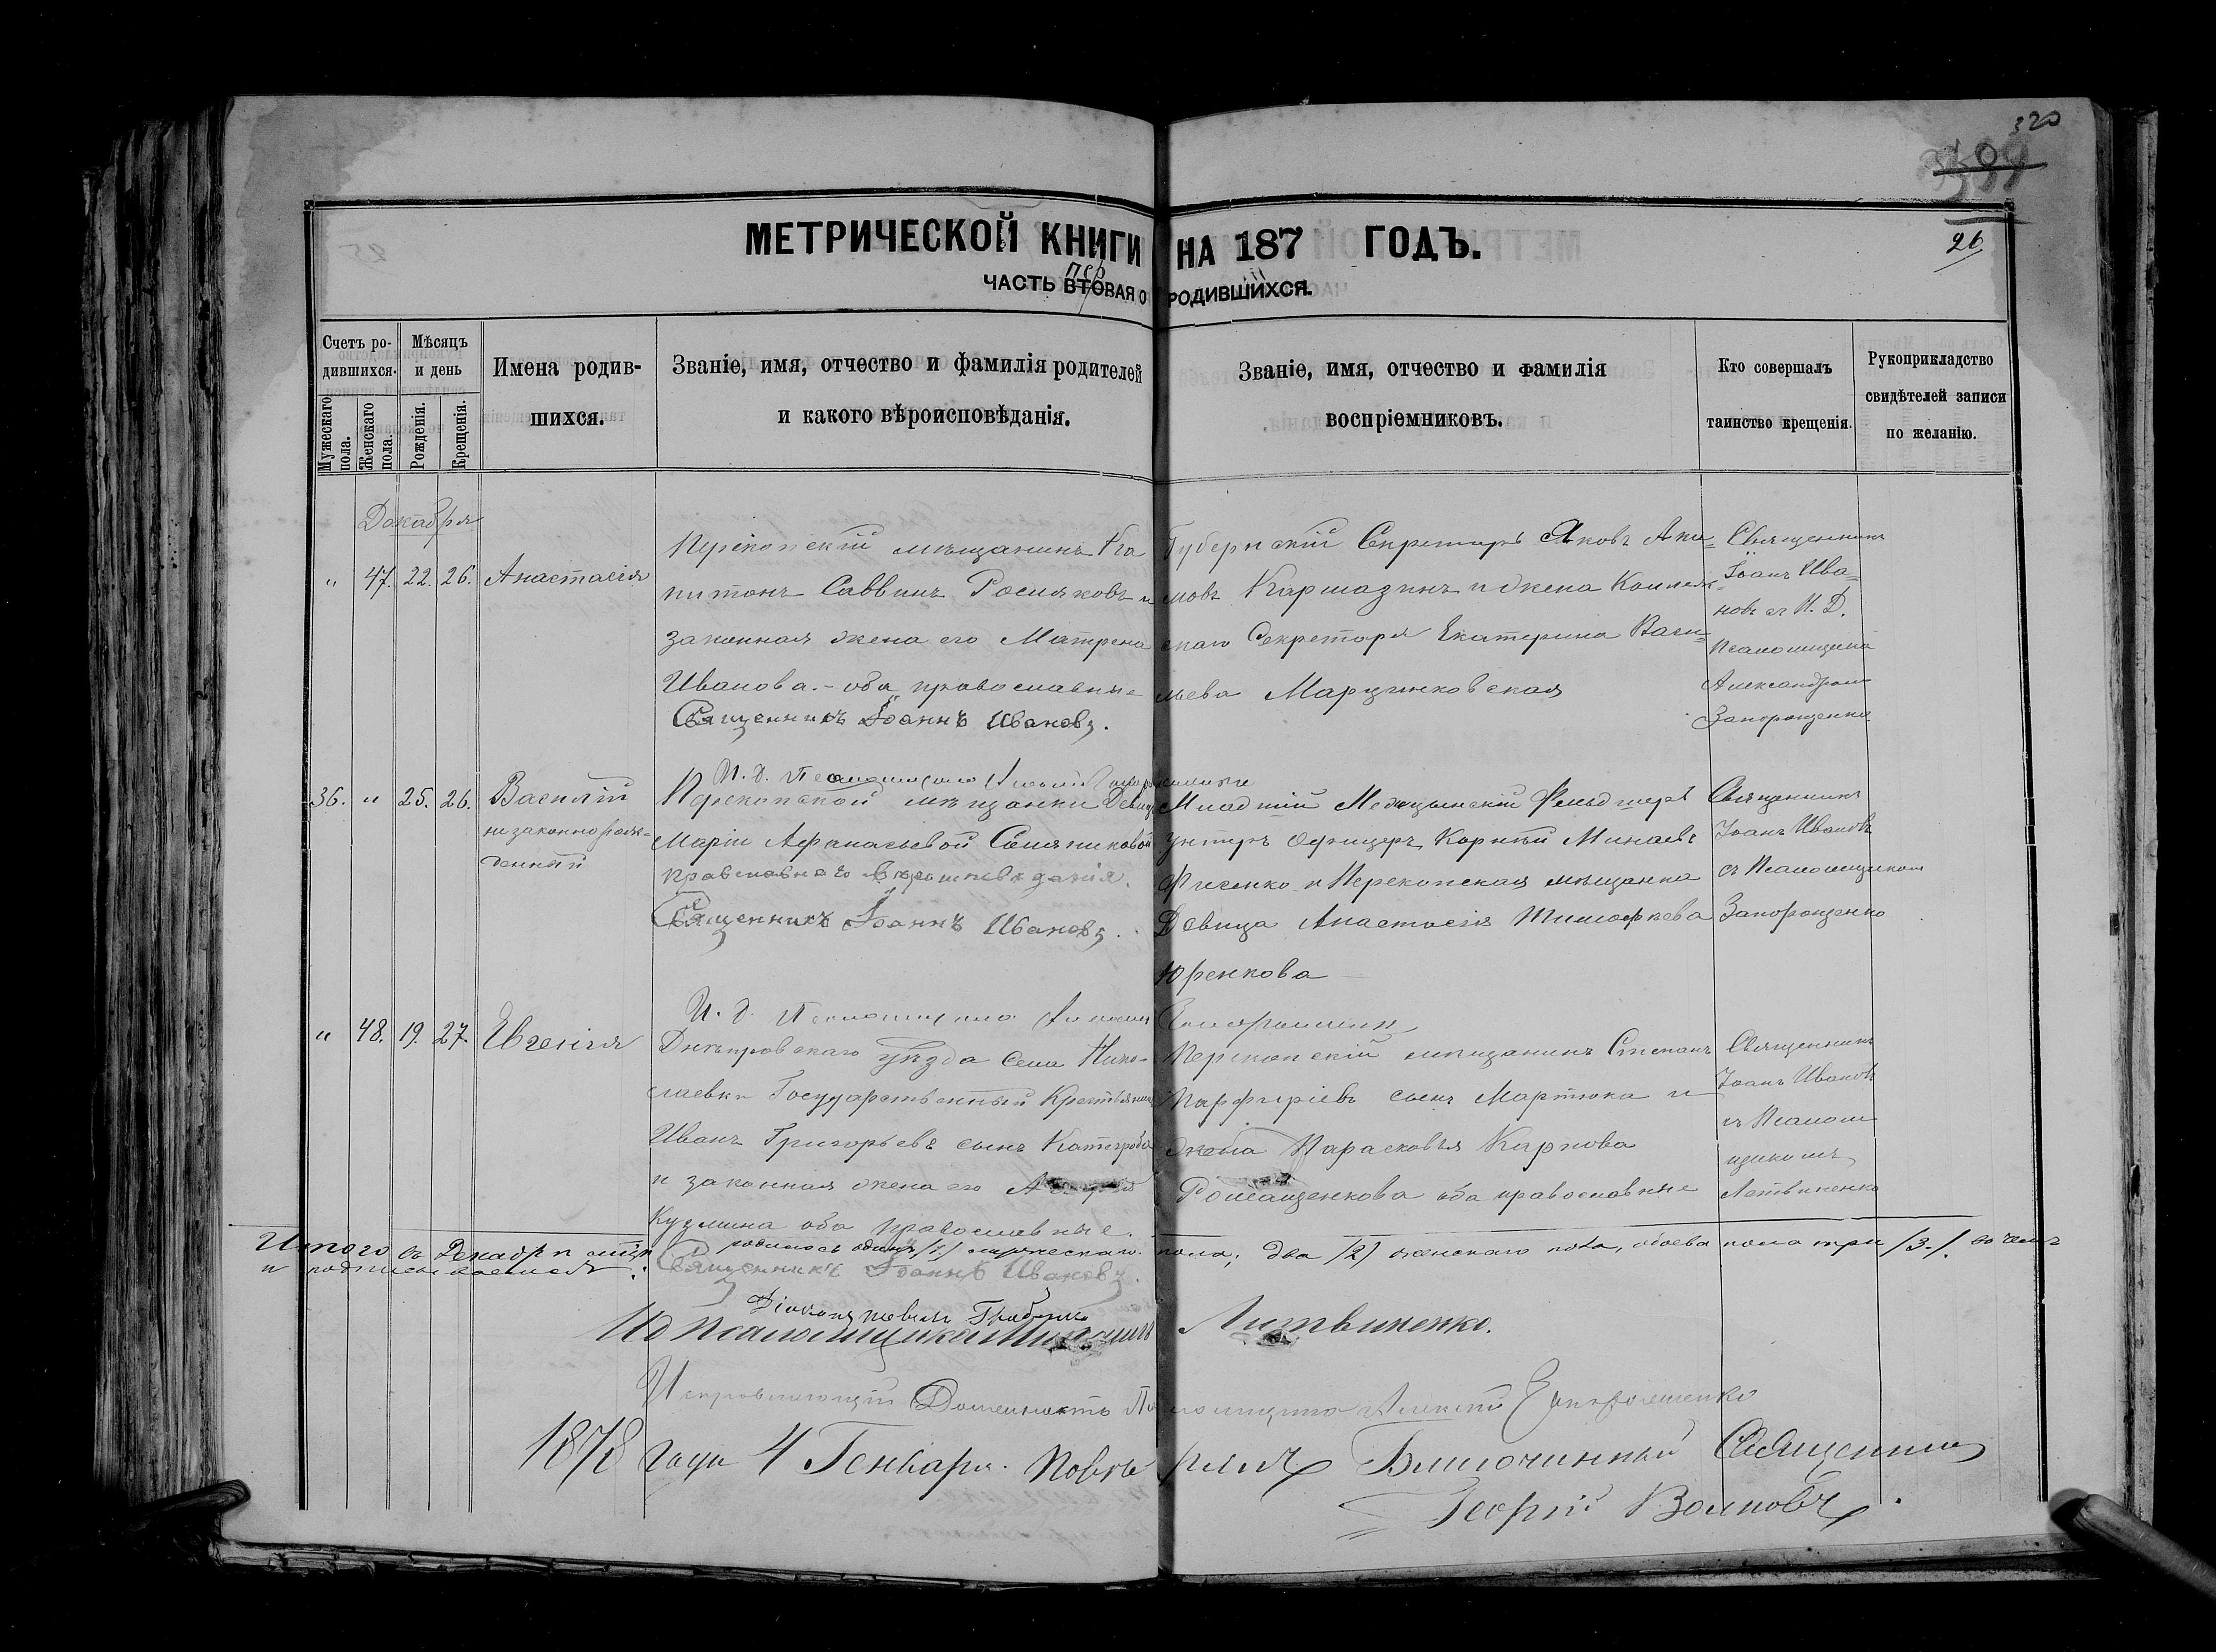 320
26
МЕТРИЧЕСКОЙ КНИГИ НА 187 ГОДЪ.
пер
ЧАСТЬ ВТОВАЯ О РОДИВШИХСЯ.
Счетъ ро-
дившихся.
Мужескаго пола.
Женскаго пола.
Мѣсяцъ
и день
Рожденія.
Крещенія.
Имена родив-
шихся.
Званіе, имя, отчество и фамилія родителей
и какого вѣроисповѣданія.
Званіе, имя, отчество и фамилія
воспріемниковъ.
Кто совершалъ
таинство крещенія.
Рукоприкладство
свидѣтелей записи
по желанію.
Декабря
" 47. 22. 26. Анастасія
Перекопскій мѣщанинъ Ка
питонъ Саввинъ Росляковъ и
законная жена его Матрена
Иванова. - оба православные
Священникъ Іоаннъ Ивановъ.
Губернскій Секретарь Яковъ Аки=
мовъ Кармазинъ и жена Коллеж
скаго Секретаря Екатерина Васи=
льева Марцинковская
Священникъ
Іоанъ Ива=
новъ съ И. Д.
Псаломщика
Александромъ
Запорощенко
И. д. Псаломщика
36. " 25. 26. Василій
незаконнорож=
денный
Перекопской мѣщанки Девицы
Маріи Афанасьевой
православнаго вѣроисповѣданія.
Священникъ Іоаннъ Ивановъ.
Младшій Медицынскій Фельдшеръ
унтеръ офицеръ Корнѣй Минаевъ
и Перекопская мѣщанка
Девица Анастасія Тимофеева
Юренкова
Священникъ
Іоанъ Ивановъ
съ Псаломщикомъ
Запорощенко
И. д. Псаломщика
" 48. 19. 27. Евгенія
Днѣпровскаго уѣзда Села Нико-
лаевки Государственный Крестьянинъ
Иванъ Григорьевъ сынъ
и законная жена его
Кузмина оба православные.
Перекопскій мѣщанинъ Степанъ
Парфиріевъ сынъ Мартюка и
жена Парасковья Карпова
Ромащенкова оба православные
Священникъ
Іоанъ Ивановъ
съ Псалом
щикомъ
Летвиненко
Итого въ Декабрѣ м-цѣ родилось одинъ /1/ мужескаго пола, два /2/ женскаго пола, обоева пола три /3./. во чемъ
и подписываемся:
Священникъ Іоаннъ Ивановъ.
Діаконъ
ИД Псаломщика Литвиненко.
Исправляющій Должность Псаломщика Алексѣй
1878 года 4 Генваря. Повѣрялъ Благочинный Священникъ
Георгій Волковъ.